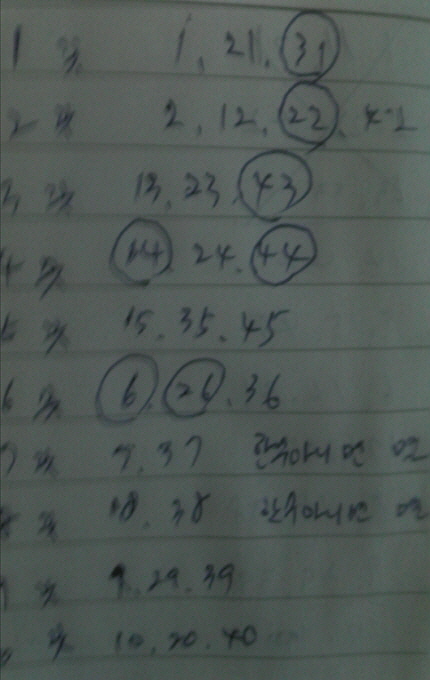 1 끝 1, 21, 31
2 끝 2, 12, 22, 42
3 끝 13, 23, 43
4 끝 14, 24, 44
5 끝 15, 35, 45
6 끝 6, 26, 36
7 끝 7, 37 한수아니면 멸
8 끝 18, 38 한수아니면 멸
9 끝 9, 29, 39
끝 10, 20, 40